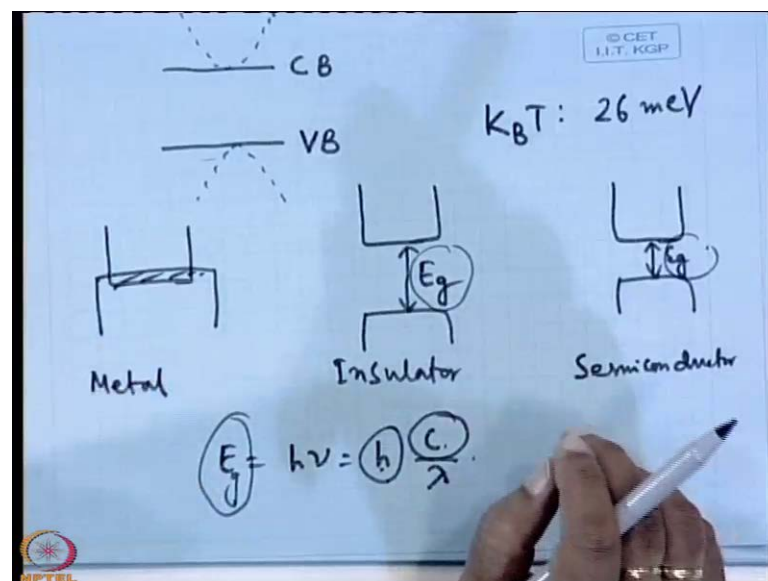 © CET
I.I.T. KGP
CB
K_BT : 26 meV
VB
Eg
Eg
Metal
Insulator
Semiconductor
Eg = hν = h c/λ.
NPTEL